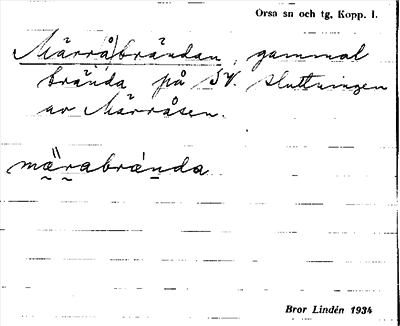 Orsa sn och tg, Kopp. l.
Märrå)brändan, gammal
brända på SV. sluttningen
av Märråsen.
märabrända
Bror Lindén 1934